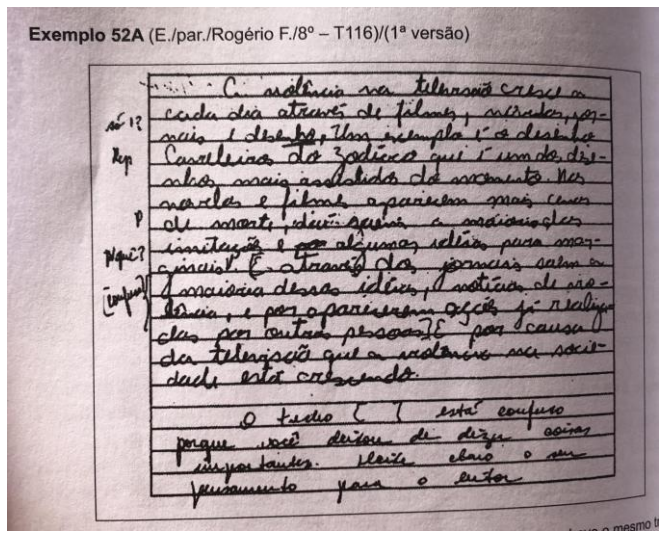 Exemplo 52A (E./par./Rogério F./8º – T116)/(1ª versão)
A violência na televisão cresce a
cada dia através de filmes, novelas, jor-
só 1?
nais e desenho, Um exemplo é o desenho
Rep
Cavaleiros do Zodíaco que é um dos dese-
nhos mais assistidos do momento. Nas
novelas e filmes aparecem mais cenas
P
de morte, daí a maioria das
p/ quê?
imitação e algumas idéias para mar-
ginais. [ através dos jornais saem a
(confuso)
maioria dessas idéias, notícias de vio-
lência, e por aparecerem ações já realiza-
das por outras pessoas] É por causa
da televisão que a violência na socie-
dade está crescendo.
O trecho [ ] está confuso
porque você deixou de dizer coisas
importantes. Deixe claro o seu
pensamento para o leitor
o mesmo